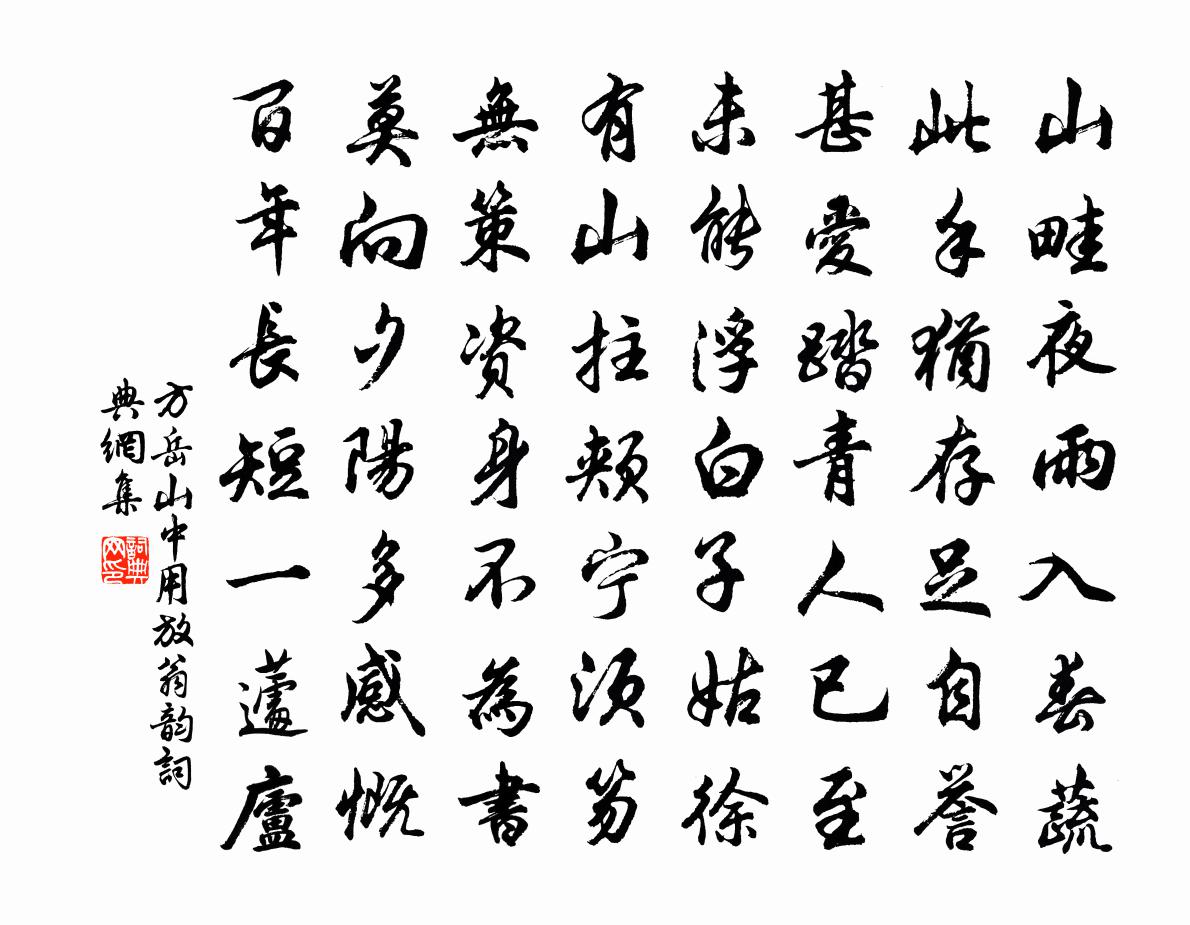 山畦夜雨入春蔬
此手猶存足自誉
甚愛踏青人已至
未能浮白子姑徐
有山拄頰宁須笏
無策資身不為書
莫向夕陽多感慨
百年長短一蘧廬
方岳山中用放翁韵詞
典網集
詞典
网印